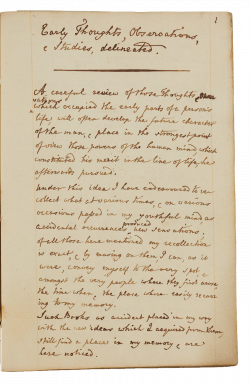 1
Early Thoughts, Observations,
& Studies, delineated.
A careful review of those Thoughts, Obser
vations which occupied the early parts of a person's
life, will often develope the future character
of the man, & place in the strongest point
of view those powers of the human mind which
constituted his merit in the line of life he
afterwards pursued.
Under this idea I have endeavoured to re-
collect what at various times, & on various
occasions passed in my youthful mind as
accidental occurrences produced new Sensations,
of all those here mentioned my recollection
is exact, & by musing on them I can, as it
were, convey myself to the very spot &
amongst the very people where they first arose,
the time when, the place where easily recurr-
ing to my memory.
Such Books as accident placed in my way
with the new ideas which I acquired from them,
still find a place in my memory, & are
here noticed.